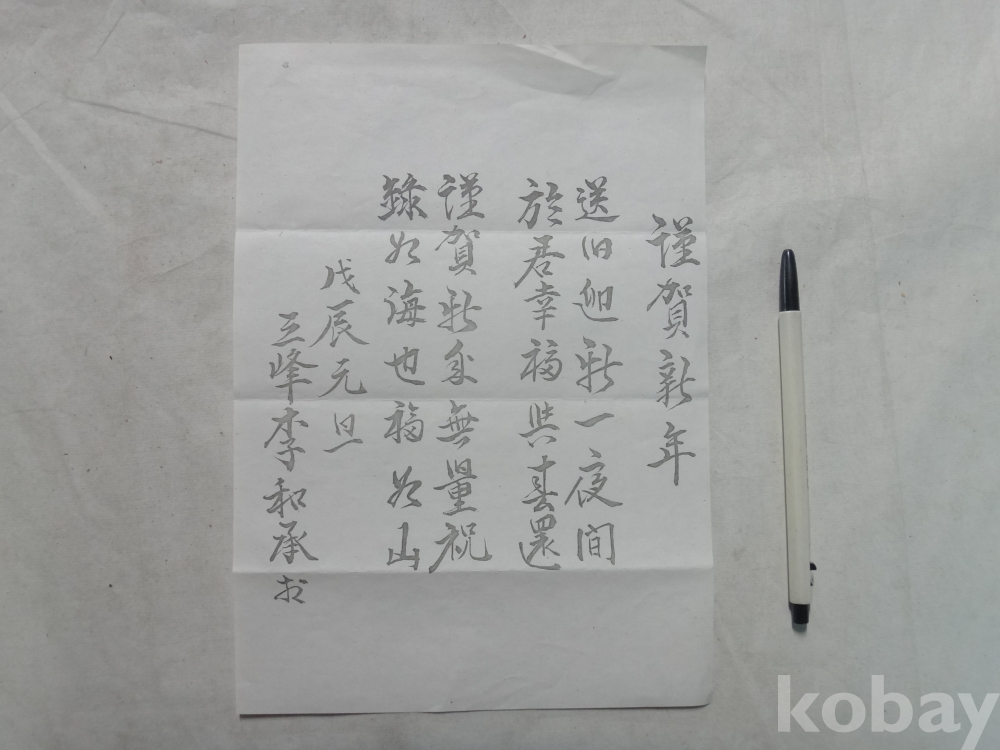 謹賀新年
送旧迎新一夜間
於君幸福與春還
謹賀新年無量祝
如海也福如山
戊辰元旦
峰李和承
kobay